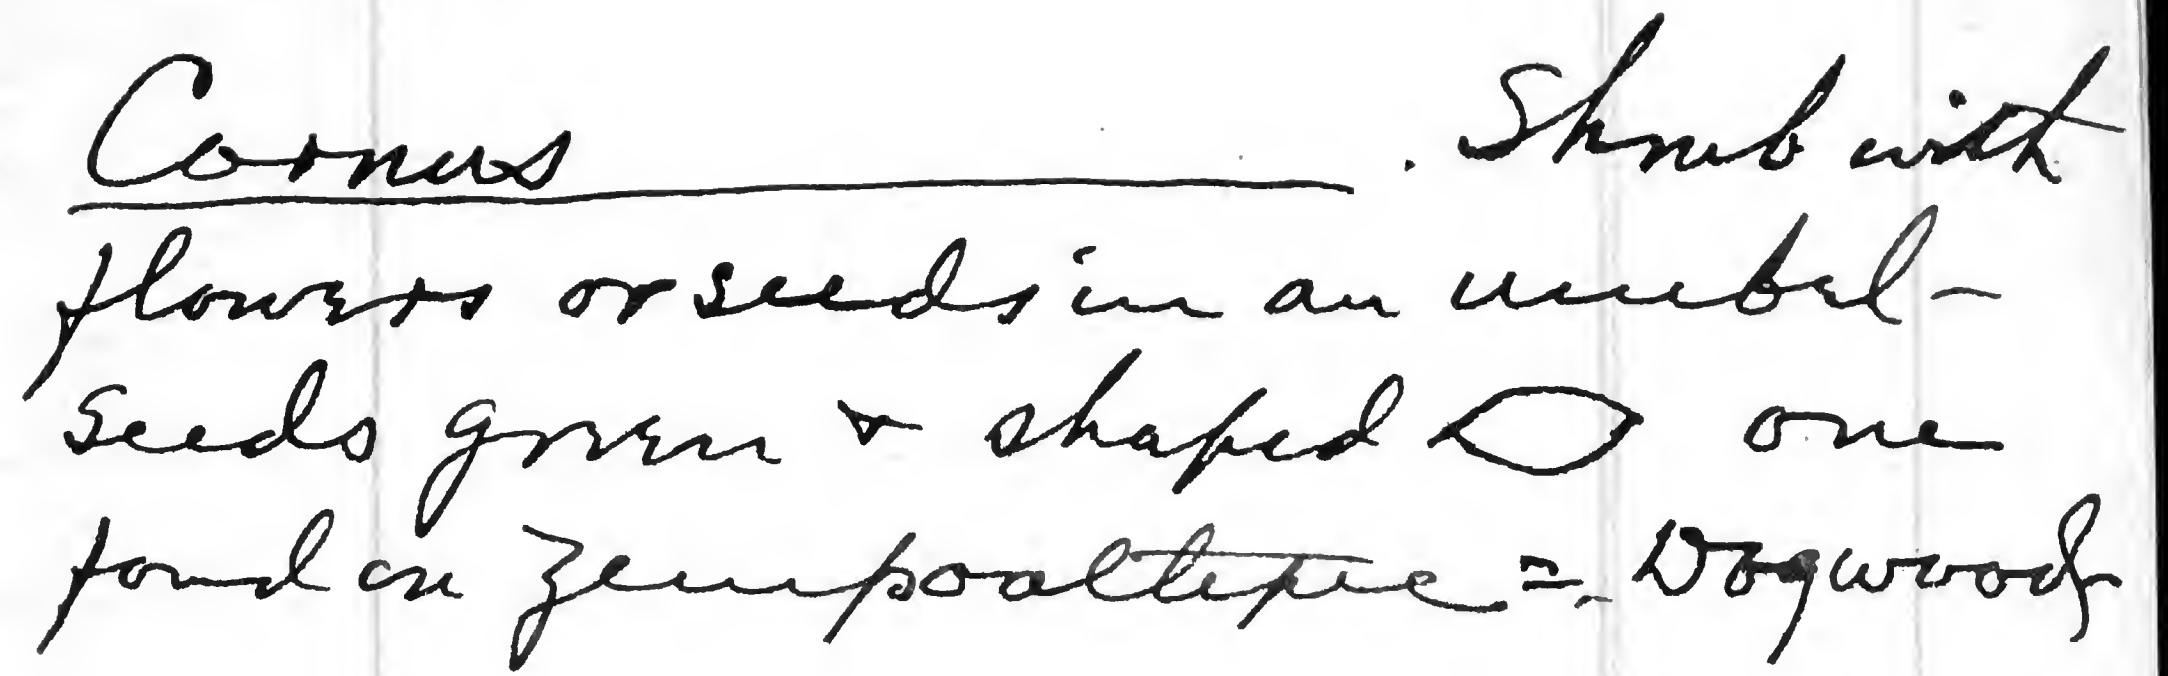 Cornus ________ . Shrub with
flowers or seeds in an umbel -
seeds green & shaped one
found on Zempoaltepec = Dogwood